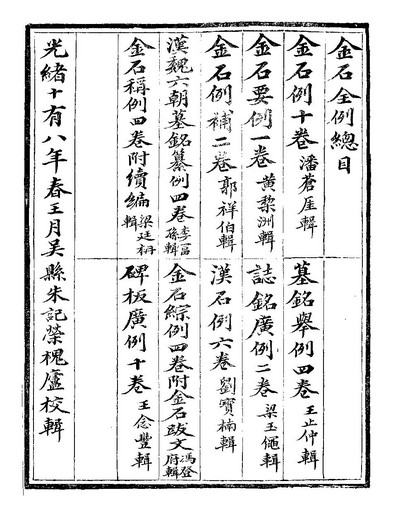 金石全例總目
金石例十卷 潘蒼厓輯
墓銘舉例四卷 王止仲輯
金石要例一卷 黃黎洲輯
誌銘廣例二卷 梁玉繩輯
金石例補二卷 郭祥伯輯
漢石例六卷 劉寶楠輯
漢魏六朝墓銘纂例四卷 李富孫輯
金石綜例四卷附金石跋文 馮登府輯
金石稱例四卷附續編 梁廷枏輯
碑板廣例十卷 王念豐輯
光緒十有八年春王月吳縣朱記榮槐廬校輯